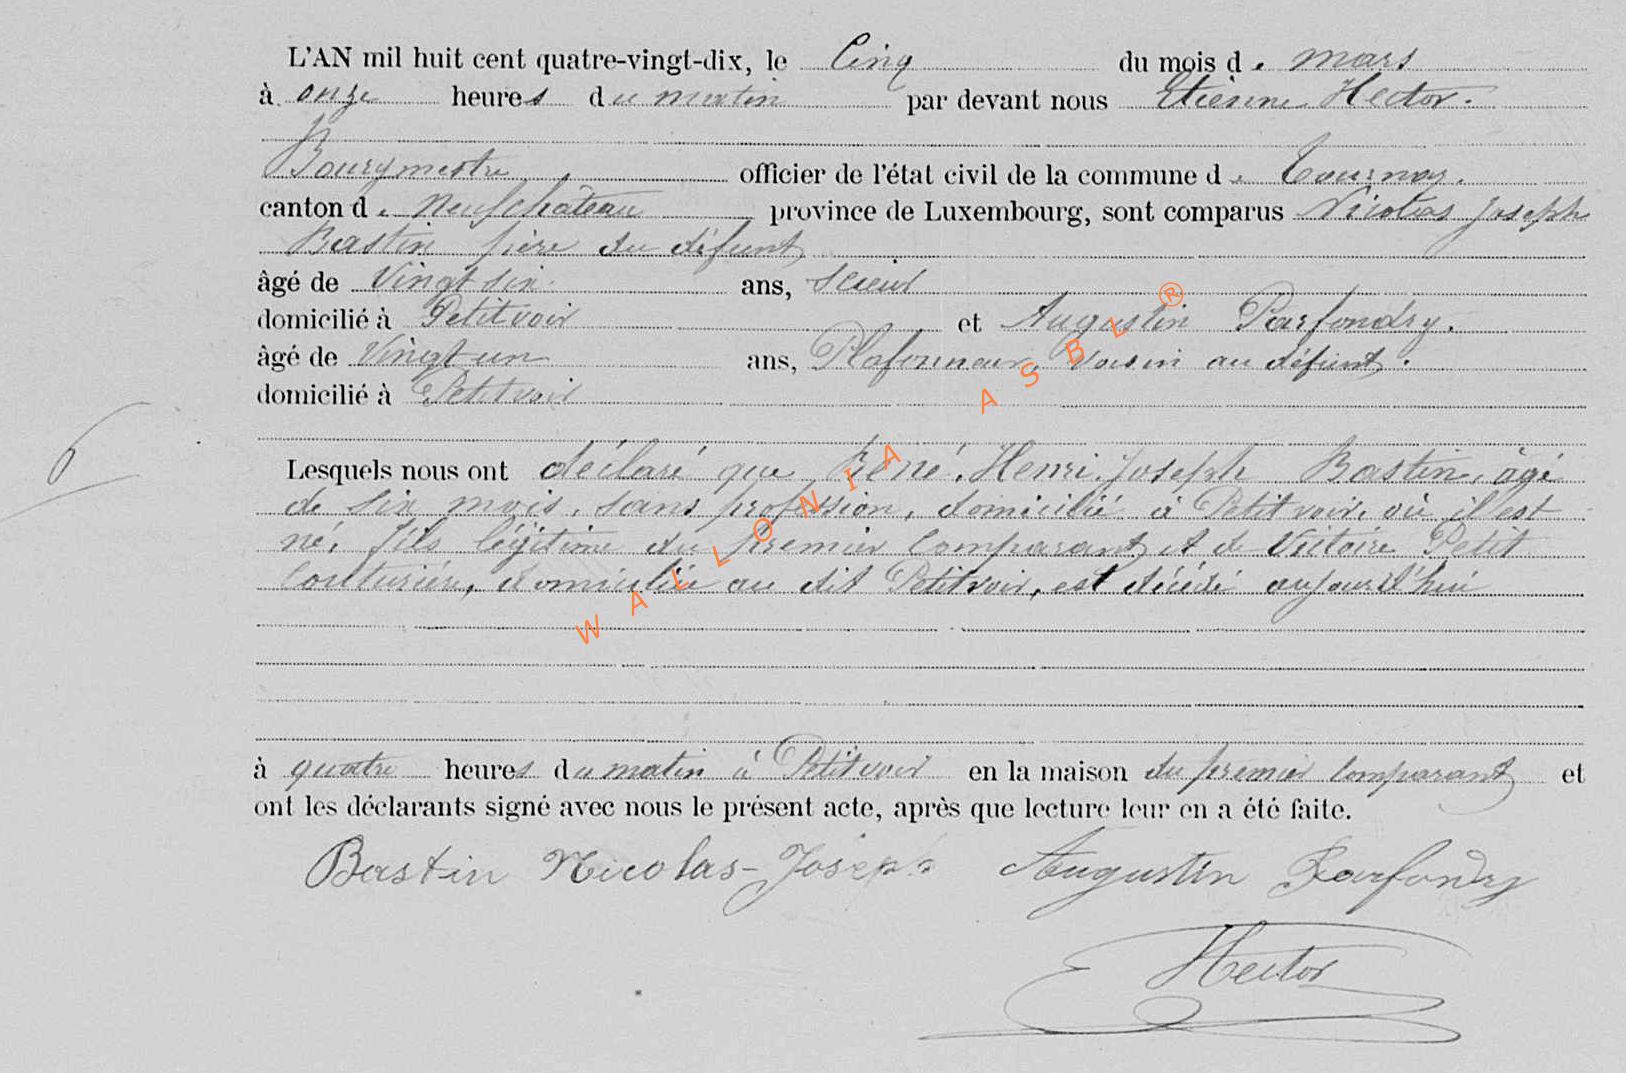 L'AN mil huit cent quatre-vingt-dix, le Cinq du mois de mars
à onze heures du matin par devant nous Etienne Hector.
Bourgmestre officier de l'état civil de la commune de Tournay.
canton de Neufchâteau province de Luxembourg, sont comparus Nicolas Joseph
Bastin père du défunt
âgé de Vingt six ans, scieur
domicilié à Petitvoir et Augustin Parfondry.
âgé de Vingt un ans, Plafonneur, voisin au défunt.
domicilié à Petitvoir
6
Lesquels nous ont déclaré que René, Henri, Joseph Bastin, âgé
de six mois, sans profession, domicilié à Petitvoir, où il est
né, fils légitime du premier comparant et de Victoire Petit
couturière, domiciliée au dit Petitvoir, est décédé aujourd'hui
à quatre heures du matin à Petitvoir en la maison du premier comparant et
ont les déclarants signé avec nous le présent acte, après que lecture leur en a été faite.
Bastin Nicolas-Joseph Augustin Parfondry
Hector
WALLONIA ASBL ®